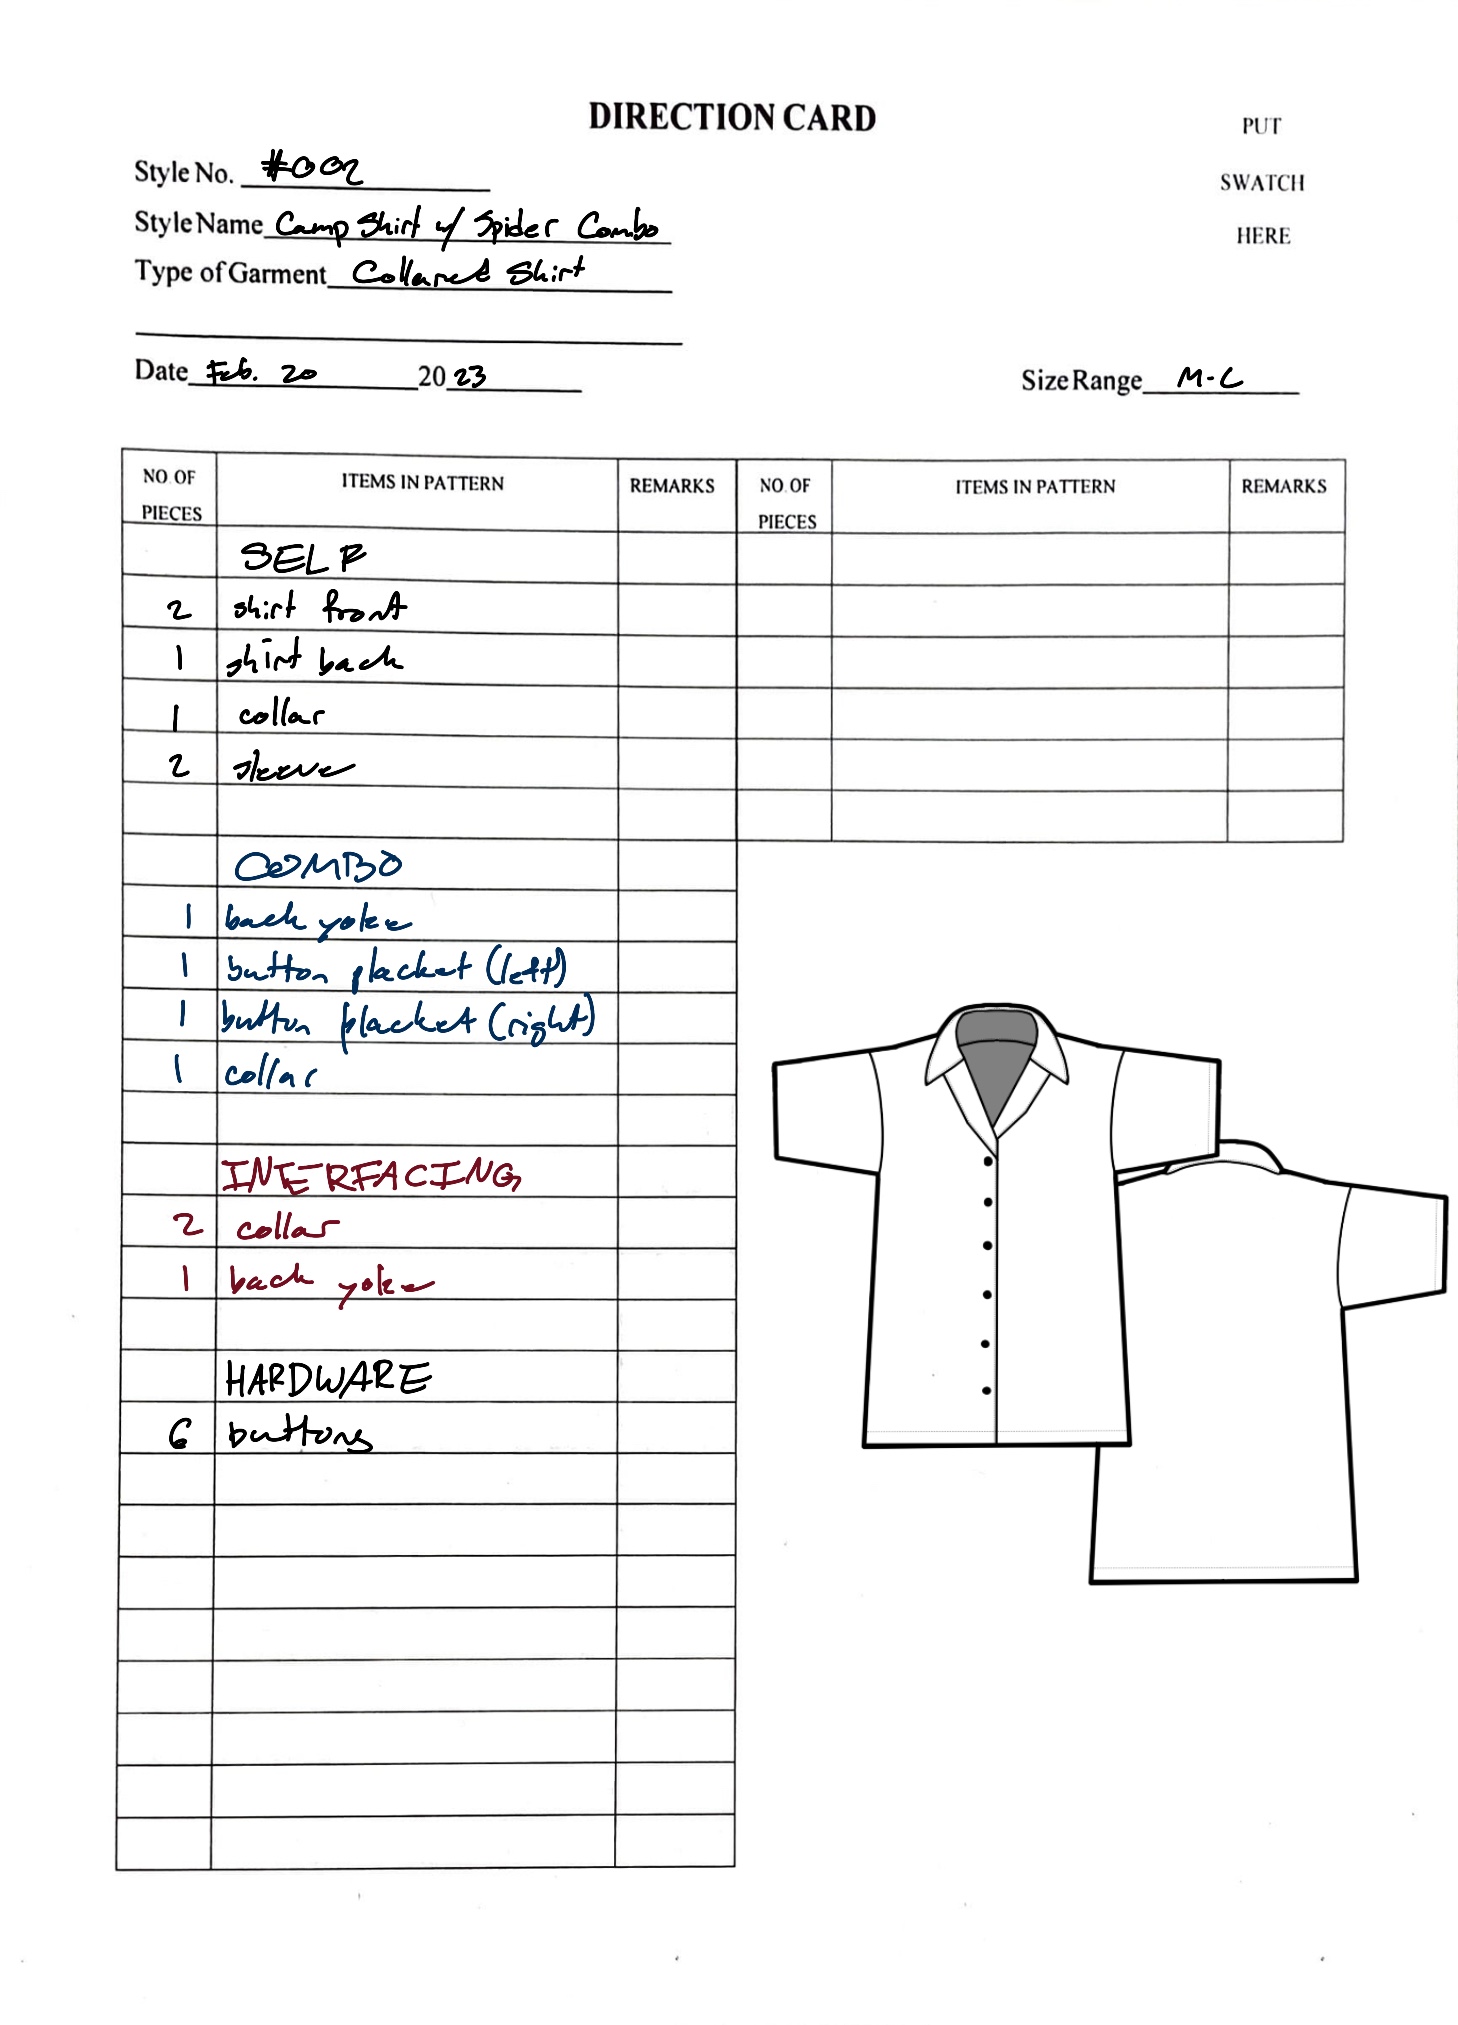 DIRECTION CARD
PUT
SWATCH
HERE
Style No. #002
Style Name Camp Shirt w/ Spider Combo
Type of Garment Collared Shirt
Date Feb. 20 2023
Size Range M-L
NO. OF PIECES ITEMS IN PATTERN REMARKS NO. OF PIECES ITEMS IN PATTERN REMARKS
SELF
2 shirt front
1 shirt back
1 collar
2 sleeve
COMBO
1 back yoke
1 button placket (left)
1 button placket (right)
1 collar
INTERFACING
2 collar
1 back yoke
HARDWARE
6 buttons